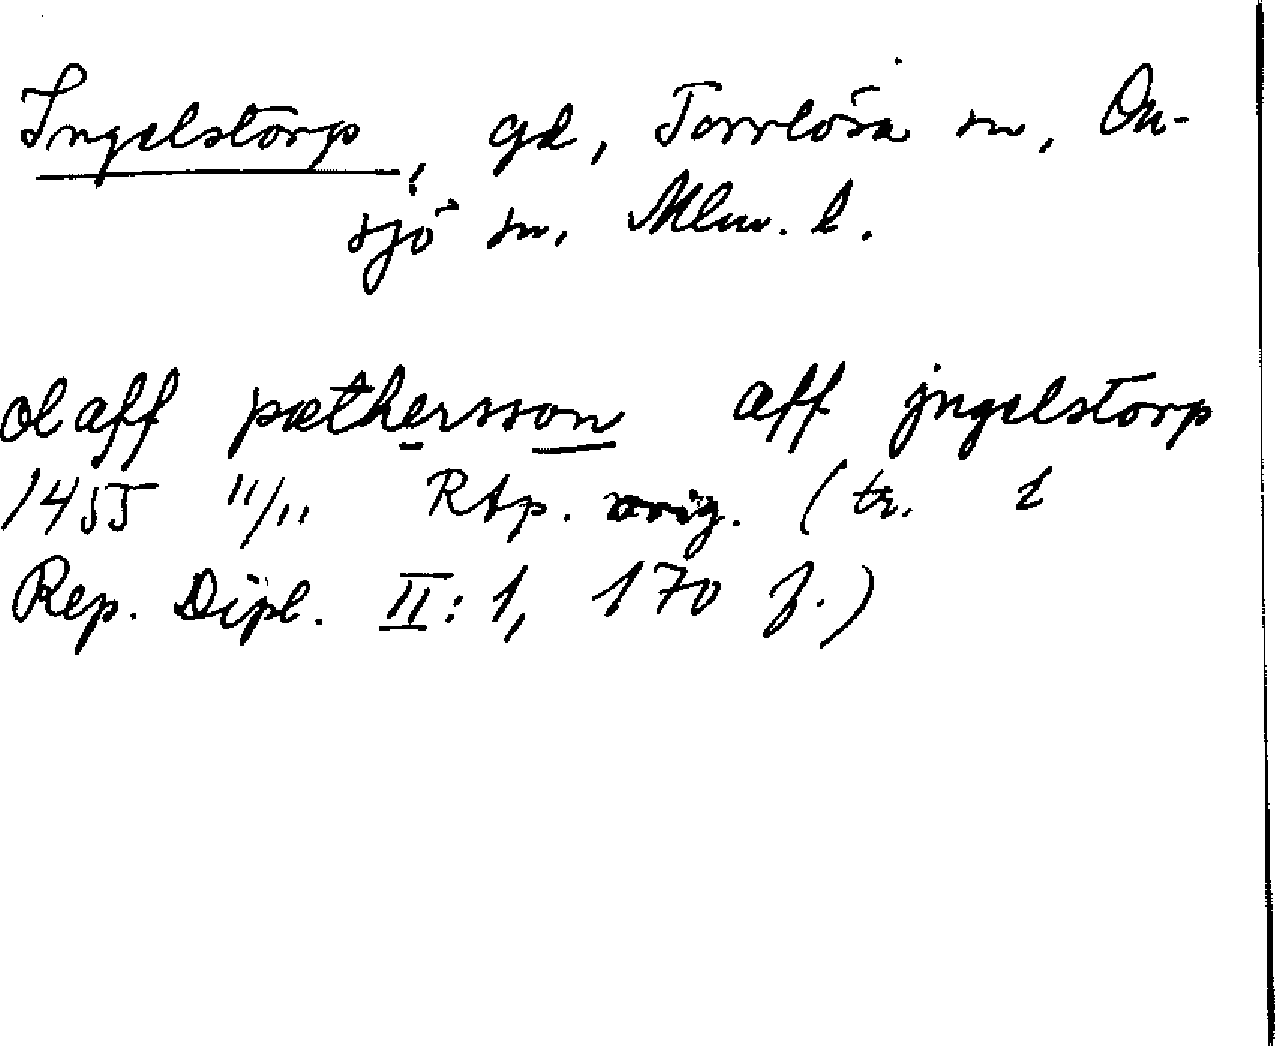 Ingelstorp, gd, Torrlösa sn, On-
sjö sn, Mlm. l.
olaff pæthersson aff jngelstorp
1455 11/11 Rbp. orig. (tr. i
Rep. Dipl. II: 1, 170 f.)